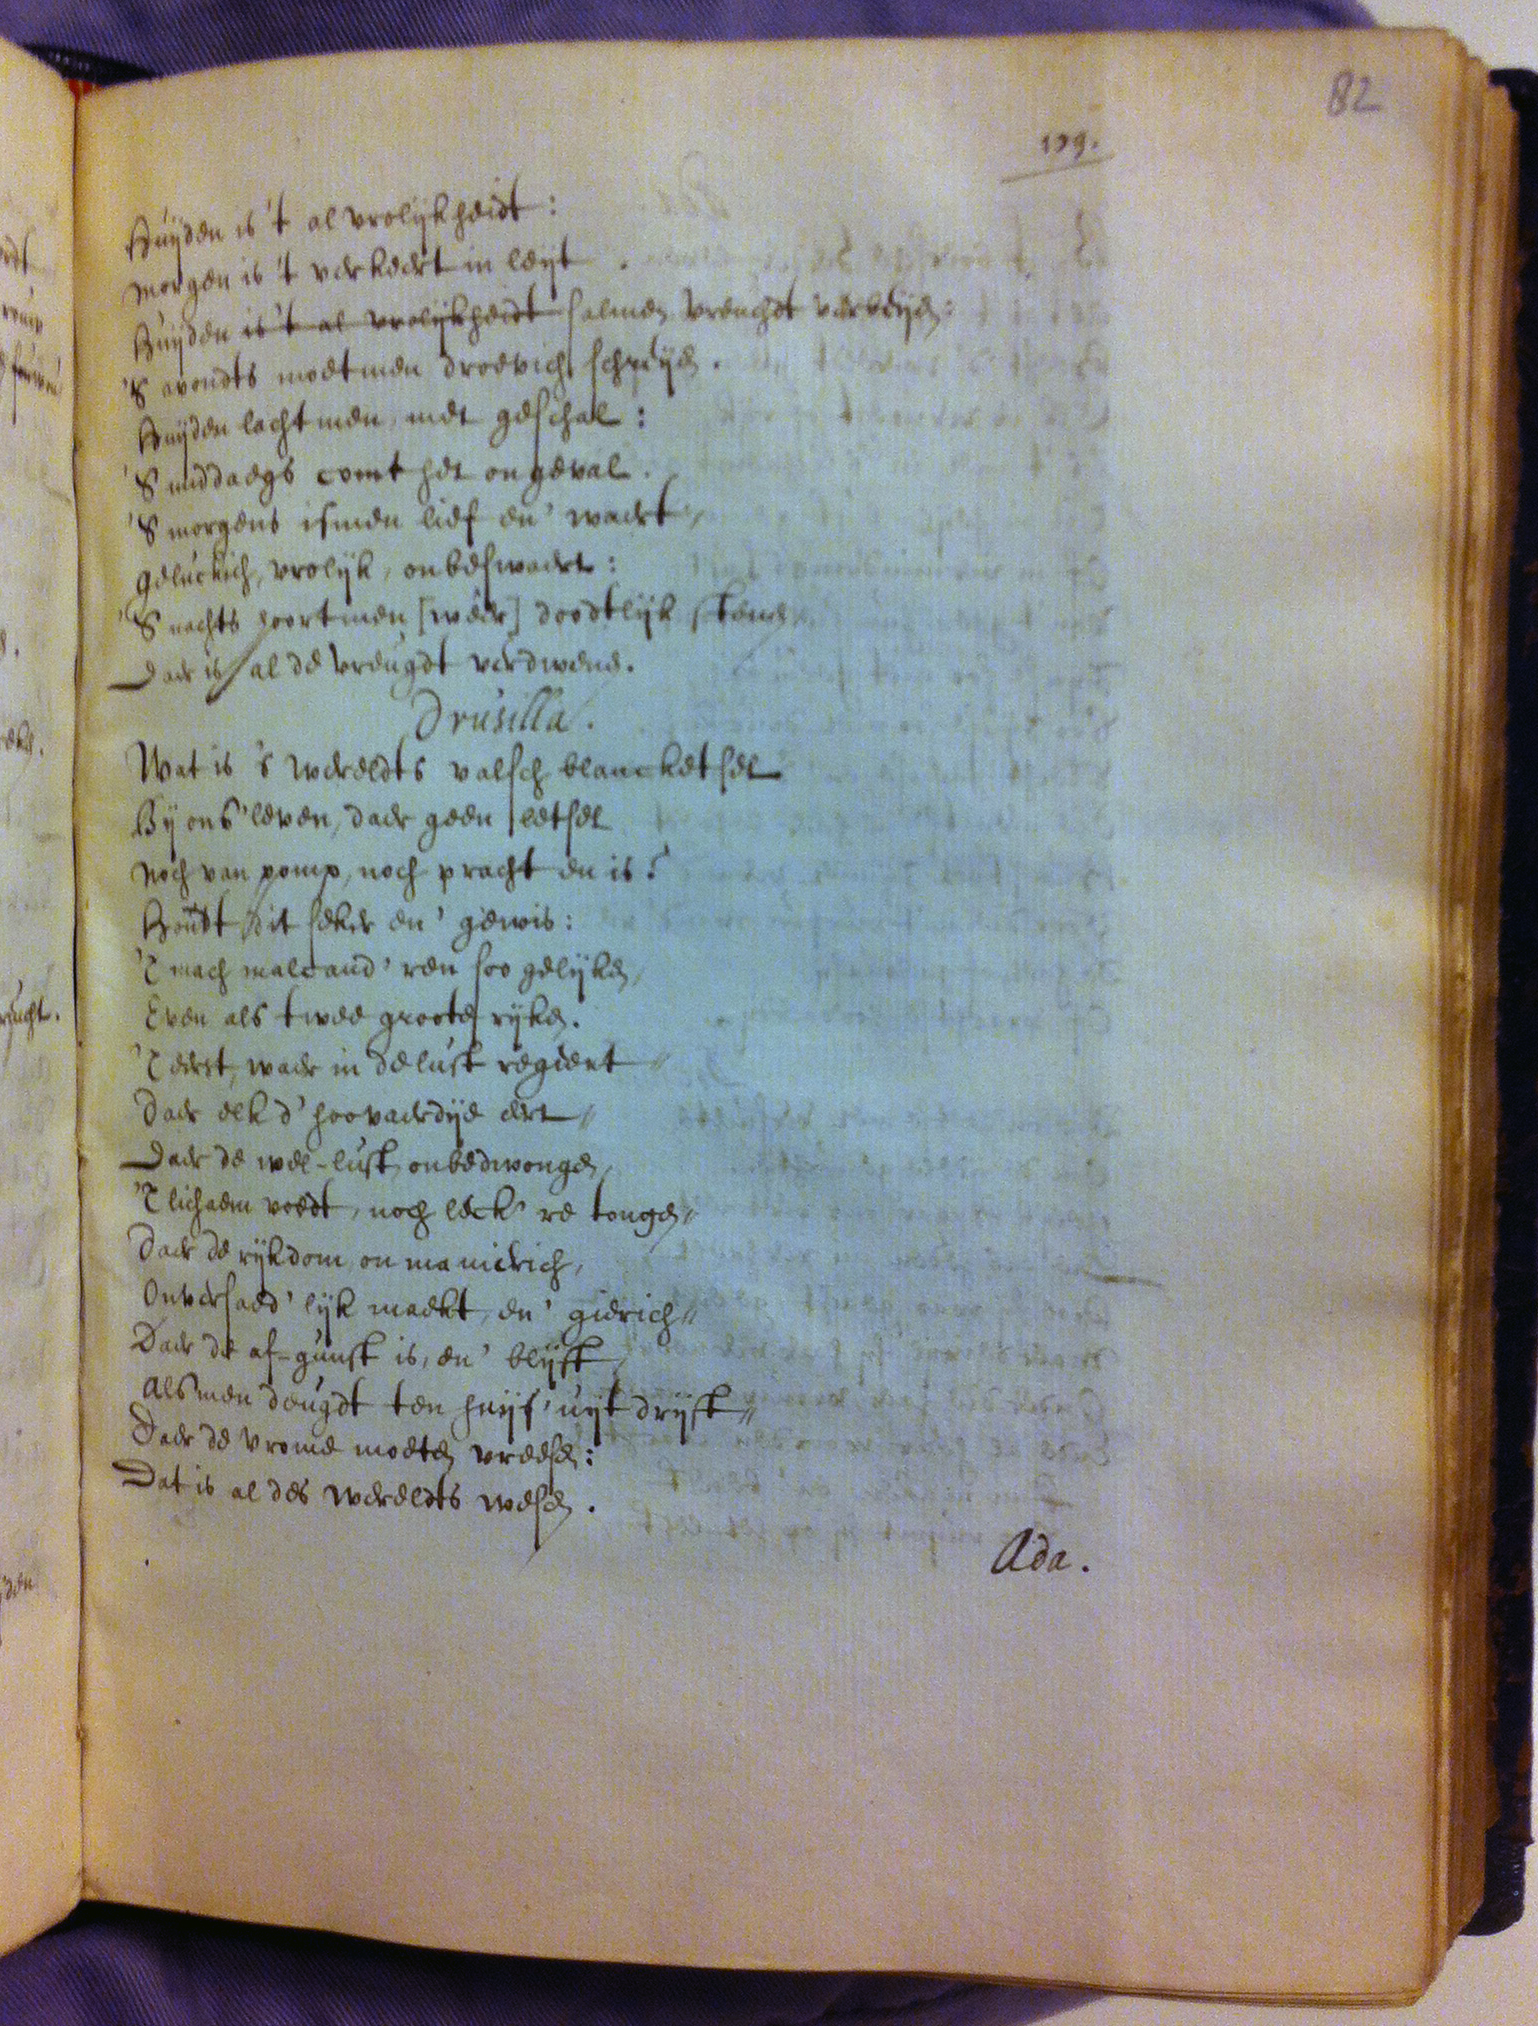 82
179.
Huijden is 't al vrolijkheidt:
Morgen is 't verkeert in leijt.
Huijden is 't al vrolijkheidt salmen vreuchdt verbeijden:
'S avondts moetmen droevich schreijen.
Huijden lachtmen, met geschal:
'S middaegs comt het ongeval.
'S morgens ismen lief en' waert,
Geluckich, vrolijk, onbeswaert:
'S nachts hoortmen [weer] doodtlijk stenen,
Daer is al de vreugdt verdwenen.
Drusilla.
Wat is 's wereldts valsch blancketsel
Bij ons' leven, daer geen letsel
Noch van pomp, noch pracht en is?
Houdt dit seker en' gewis:
'T mach malcand'ren soo gelijken,
Even als twee groote rijken.
'T eerst, waer in de lust regiert,
Daer elk d' hoovaerdije eert,
Daer de wel-lust, onbedwongen,
'T lichaem voedt, noch leck're tongen,
Daer de rijkdom, onmanierich,
Onversaed'lijk maekt, en' gierich,
Daer de af-gunst is, en' blijft,
Alsmen deugdt ten huijs' uijt drijft,
Daer de vrome moeten vreesen:
Dat is al des wereldts wesen.
Ada.